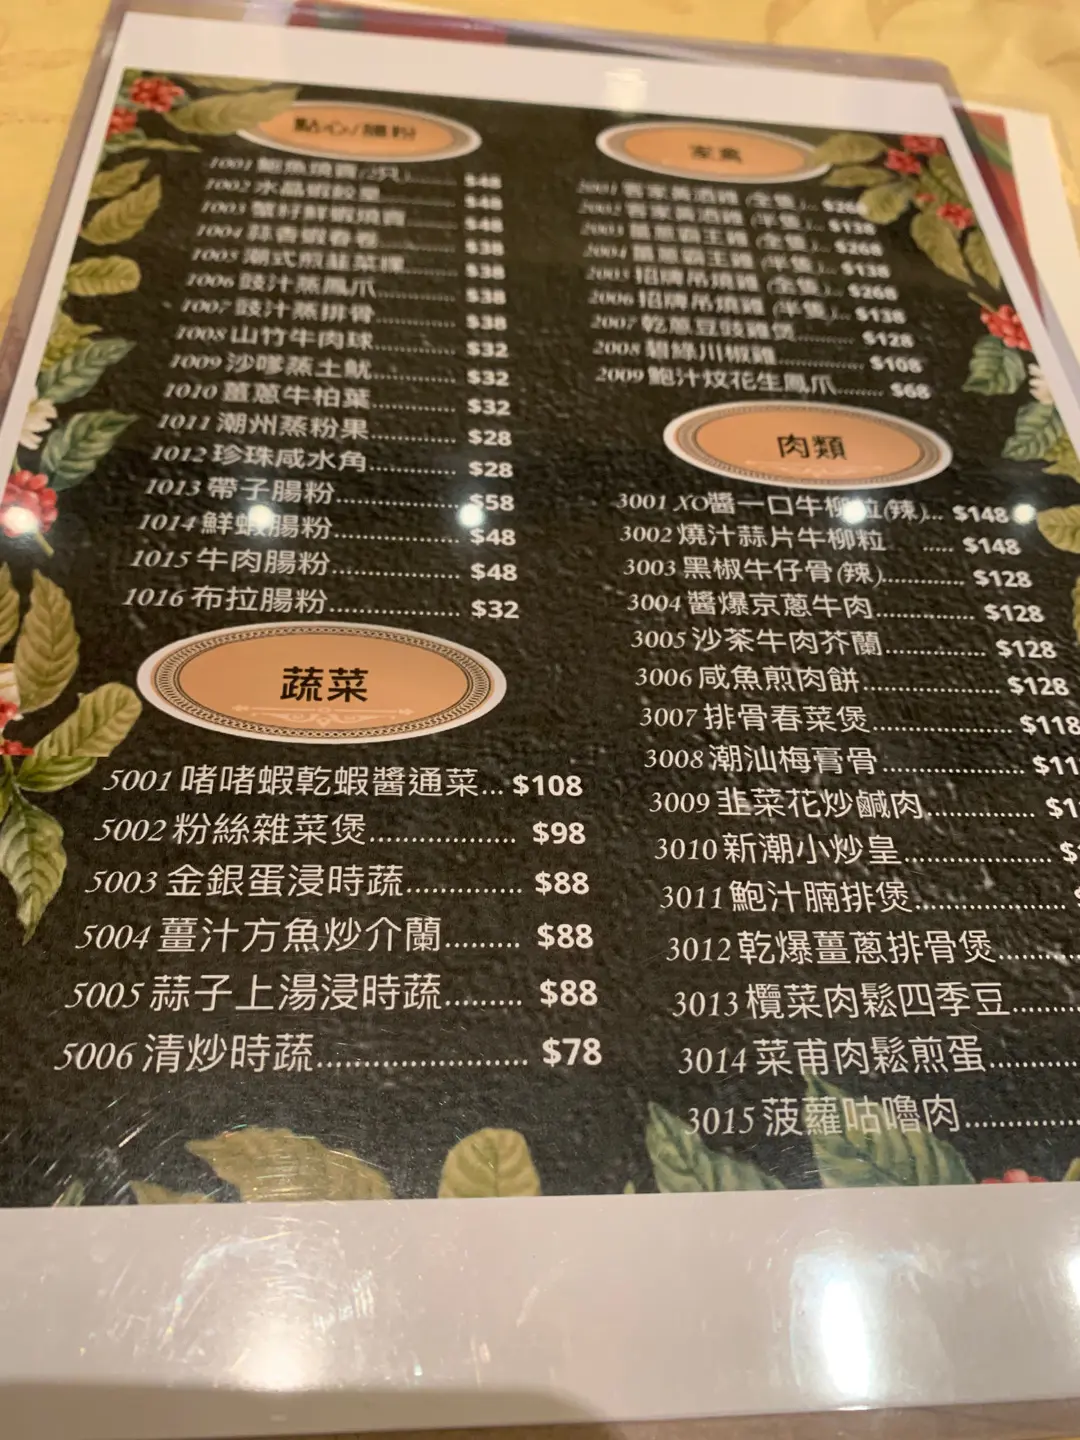 點心/腸粉
1001 鮑魚燒賣(2只)...... $48
1002 水晶蝦餃皇 $48
1003 蟹籽鮮蝦燒賣 $48
1004 蒜香蝦春卷 $38
1005 潮式煎韮菜粿 $38
1006 豉汁蒸鳳爪 $38
1007 豉汁蒸排骨 $38
1008 山竹牛肉球 $32
1009 沙嗲蒸土魷 $32
1010 薑蔥牛柏葉 $32
1011 潮州蒸粉果 $28
1012 珍珠咸水角 $28
1013 帶子腸粉 $58
1014 鮮蝦腸粉 $48
1015 牛肉腸粉 $48
1016 布拉腸粉 $32
蔬菜
5001 啫啫蝦乾蝦醬通菜... $108
5002 粉絲雜菜煲 $98
5003 金銀蛋浸時蔬 $88
5004 薑汁方魚炒介蘭 $88
5005 蒜子上湯浸時蔬 $88
5006 清炒時蔬 $78
家禽
2001 客家黃酒雞 (全隻) $268
2002 客家黃酒雞 (半隻) $138
2003 薑蔥霸王雞 (全隻) $268
2004 薑蔥霸王雞 (半隻) $138
2005 招牌吊燒雞 (全隻) $268
2006 招牌吊燒雞 (半隻) $138
2007 乾蔥豆豉雞煲 $128
2008 碧綠川椒雞 $108
2009 鮑汁炆花生鳳爪 $68
肉類
3001 XO醬一口牛柳粒(辣)... $148
3002 燒汁蒜片牛柳粒 ..... $148
3003 黑椒牛仔骨(辣) $128
3004 醬爆京蔥牛肉 $128
3005 沙茶牛肉芥蘭 $128
3006 咸魚煎肉餅 $128
3007 排骨春菜煲 $118
3008 潮汕梅膏骨 $11
3009 韭菜花炒鹹肉 $1
3010 新潮小炒皇 $
3011 鮑汁腩排煲
3012 乾爆薑蔥排骨煲
3013 欖菜肉鬆四季豆
3014 菜甫肉鬆煎蛋
3015 菠蘿咕嚕肉